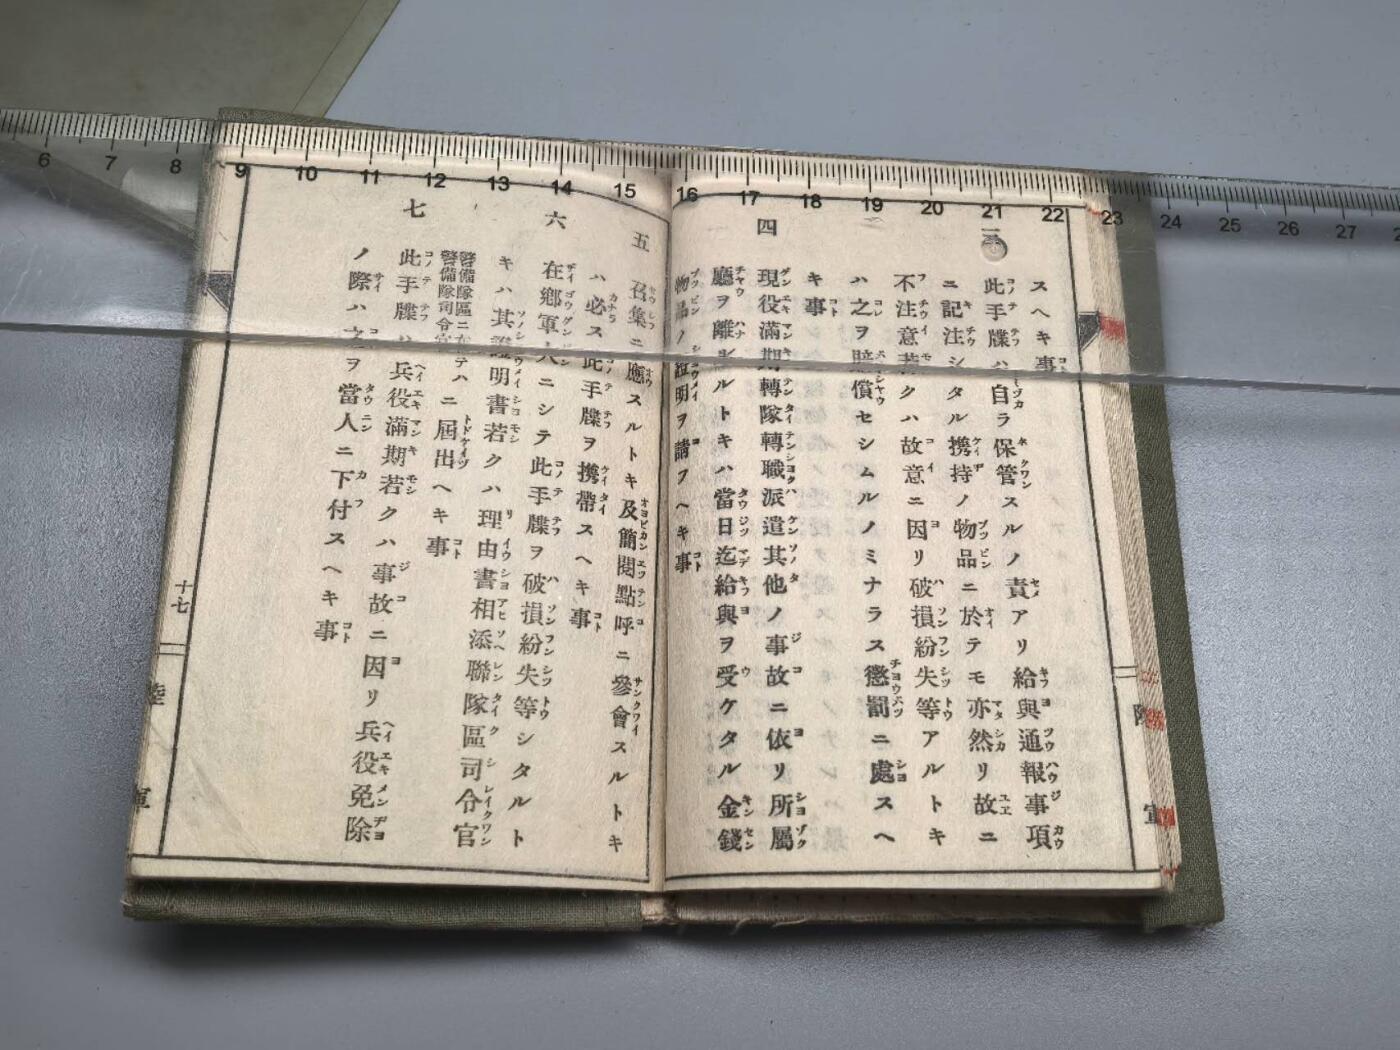 スヘキ事
三 此手牒ハ自ラ保管スルノ責アリ給與通報事項
ニ記注シタル携持ノ物品ニ於テモ亦然リ故ニ
不注意若クハ故意ニ因リ破損紛失等アルトキ
ハ之ヲ賠償セシムルノミナラス懲罰ニ處スヘ
キ事
四 現役滿期轉隊轉職派遣其他ノ事故ニ依リ所屬
廳ヲ離ルルトキハ當日迄給與ヲ受ケタル金錢
物品ノ證明ヲ請フヘキ事
五 召集ニ應スルトキ及簡閱點呼ニ參會スルトキ
ハ必ス此手牒ヲ携帶スヘキ事
六 在鄕軍人ニシテ此手牒ヲ破損紛失等シタルト
キハ其證明書若クハ理由書相添聯隊區司令官
警備隊區ニ在テハ警備隊司令官ニ屆出ヘキ事
七 此手牒ハ兵役滿期若クハ事故ニ因リ兵役免除
ノ際ハ之ヲ當人ニ下付スヘキ事
十七
陸軍
6 7 8 9 10 11 12 13 14 15 16 17 18 19 20 21 22 23 24 25 26 27